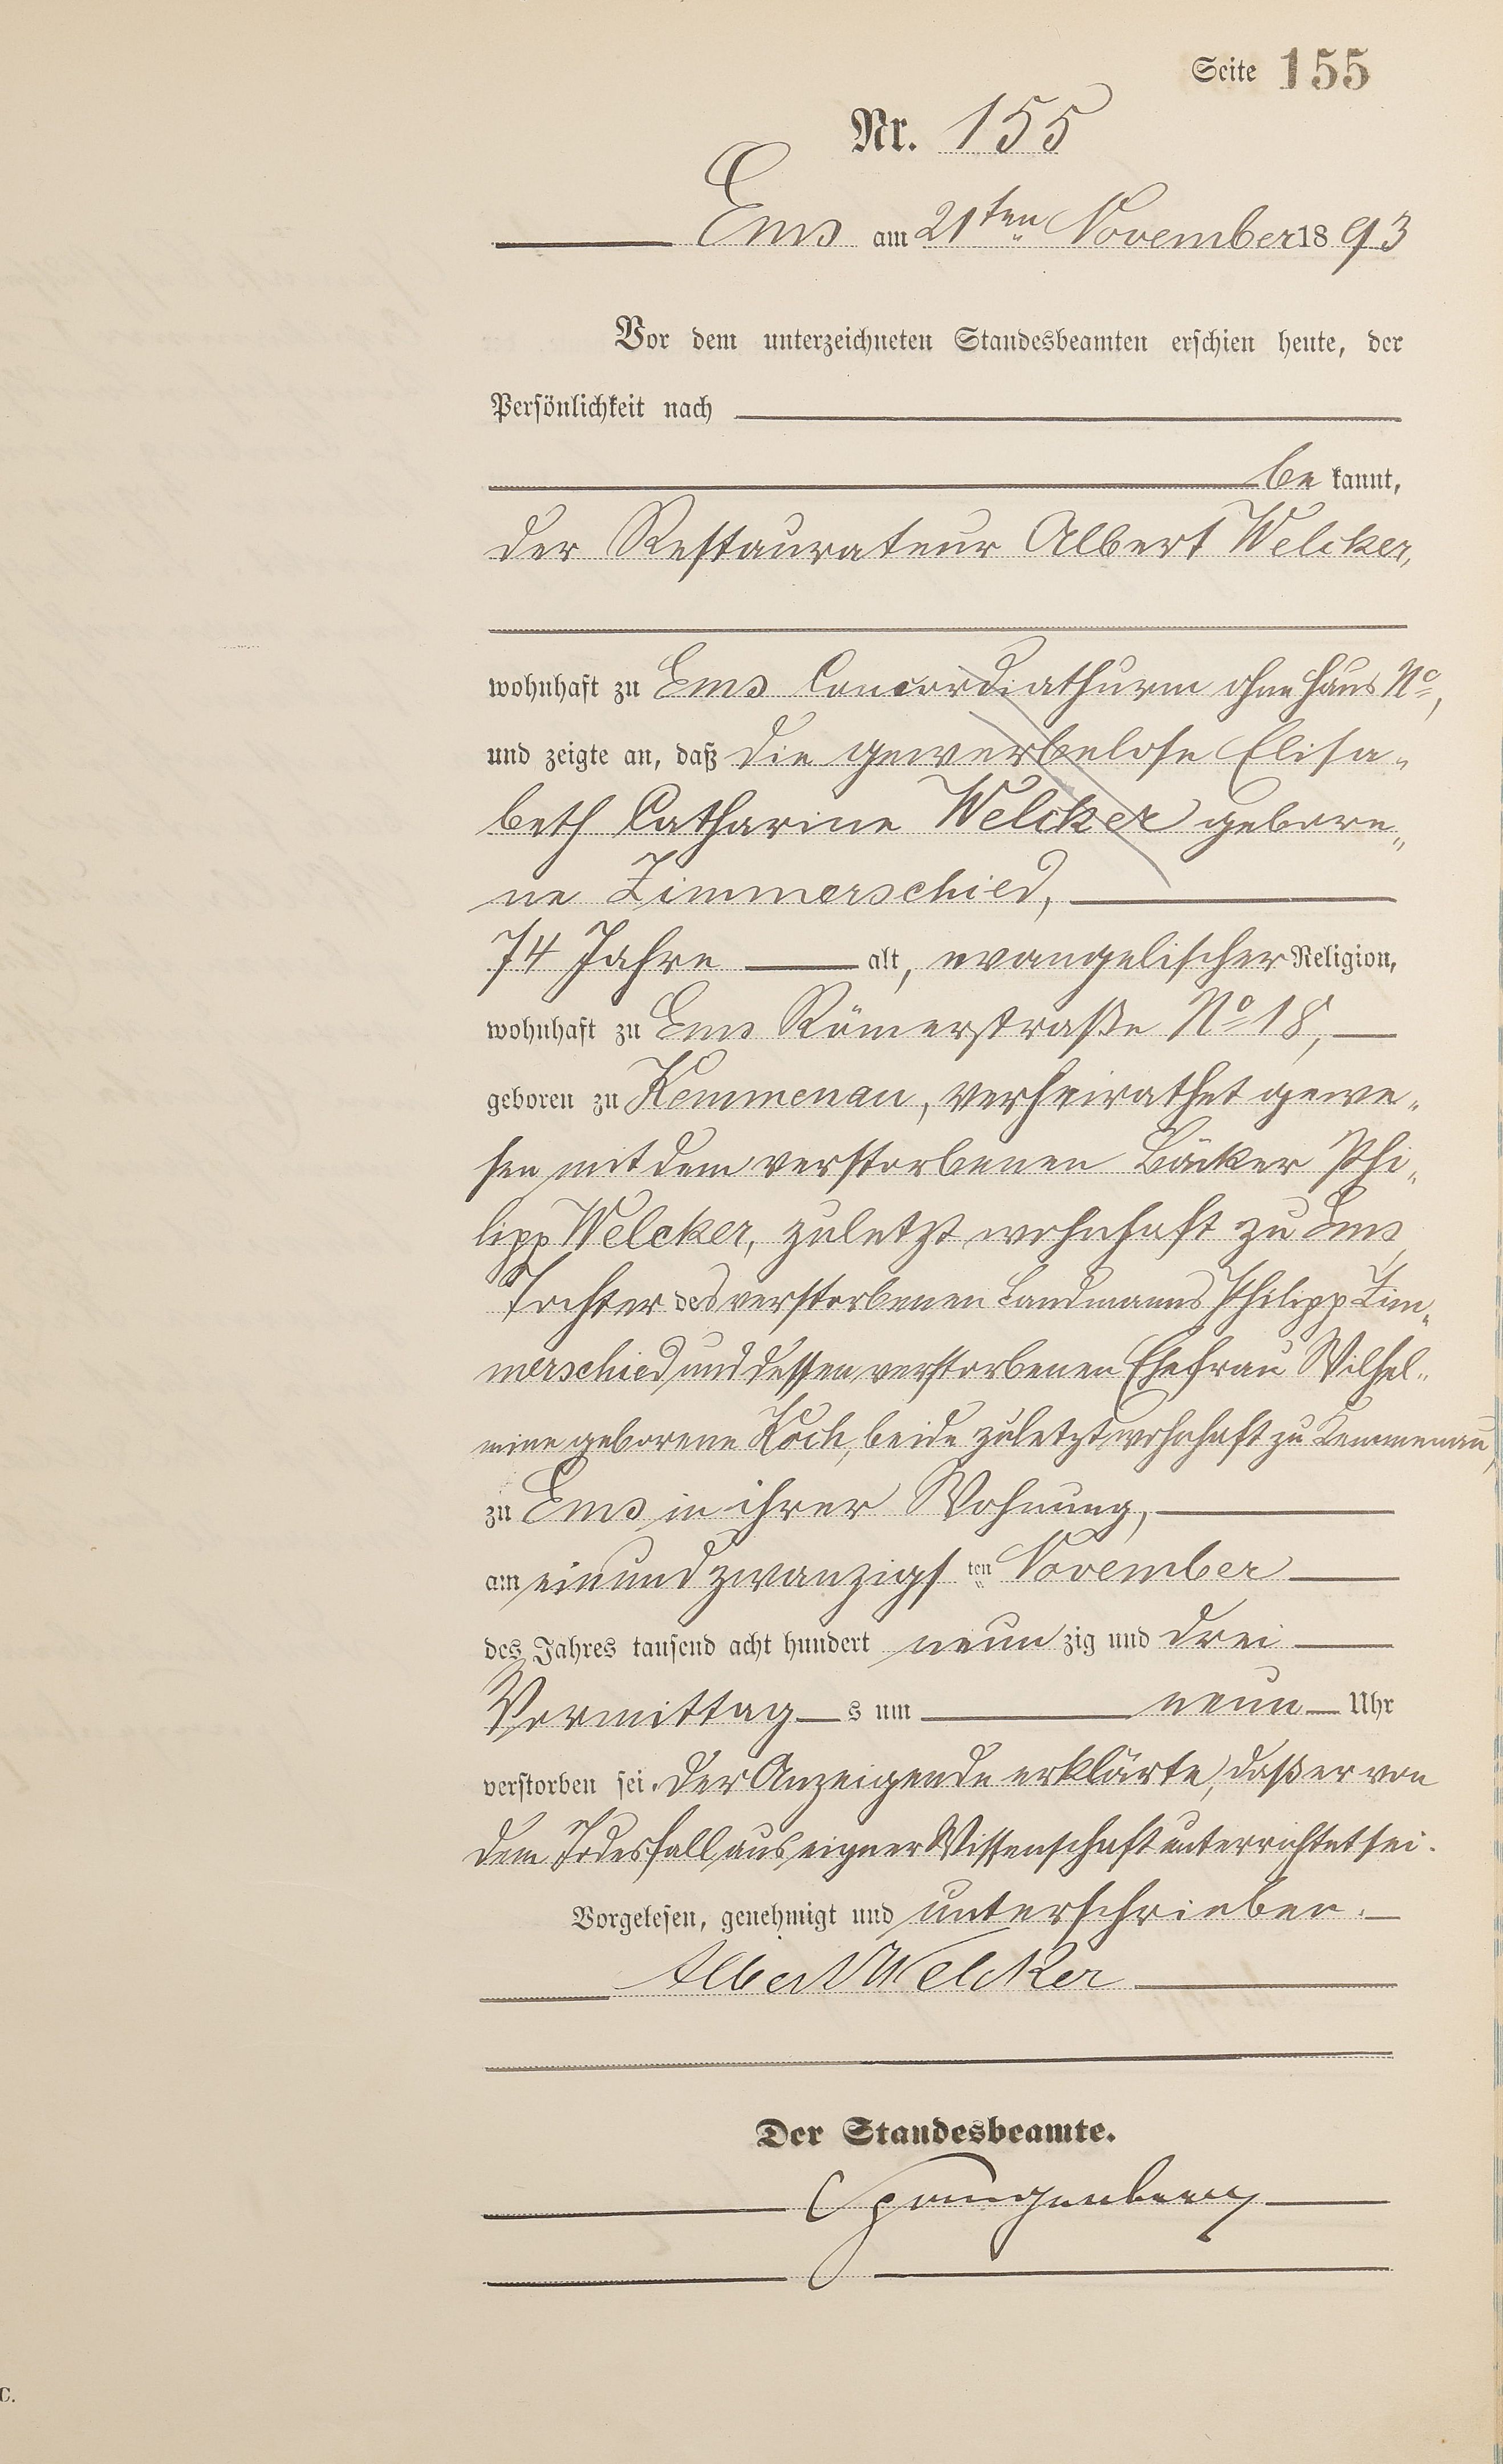 Seite 155
Nr. 155
Ems am 21ten November 1893
Vor dem unterzeichneten Standesbeamten erschien heute, der
Persönlichkeit nach
be kannt,
der Restaurateur Albert Welcker,
wohnhaft zu Ems Concordiathurm ohne Haus No,
und zeigte an, daß die gewerbelose Elisa„
beth Catharine Welcker gebore„
ne Zimmerschied,
74 Jahre alt, evangelischer Religion,
wohnhaft zu Ems Römerstraße No 18,
geboren zu Kemmenau, verheirathet gewe„
sen mit dem verstorbenen Bäcker Phi„
lipp Welcker, zuletzt wohnhaft zu Ems,
Tochter des verstorbenen Landmanns Philipp Zim„
merschied und dessen verstorbenen Ehefrau Wilhel„
mine geborene Koch, beide zuletzt wohnhaft zu Kemmenau,
zu Ems in ihrer Wohnung,
am einundzwanzigs ten November
des Jahres tausend acht hundert neun zig und drei
Vormittag s um neun Uhr
verstorben sei. Der Anzeigende erklärte, daß er von
dem Todesfall aus eigner Wissenschaft unterrichtet sei.
Vorgelesen, genehmigt und unterschrieben.
Albert Welcker
Der Standesbeamte.
Spangenberg
C.